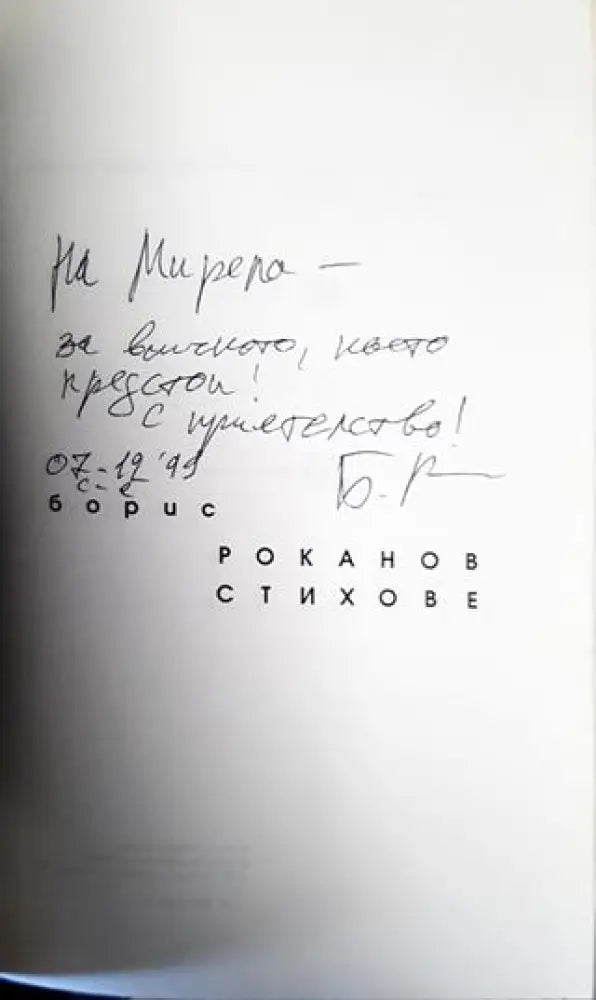 На Мирела –
за всичкото, което
предстои!
С приятелство!
07-12'99
Б. Р
с-с
борис
РОКАНОВ
СТИХОВЕ